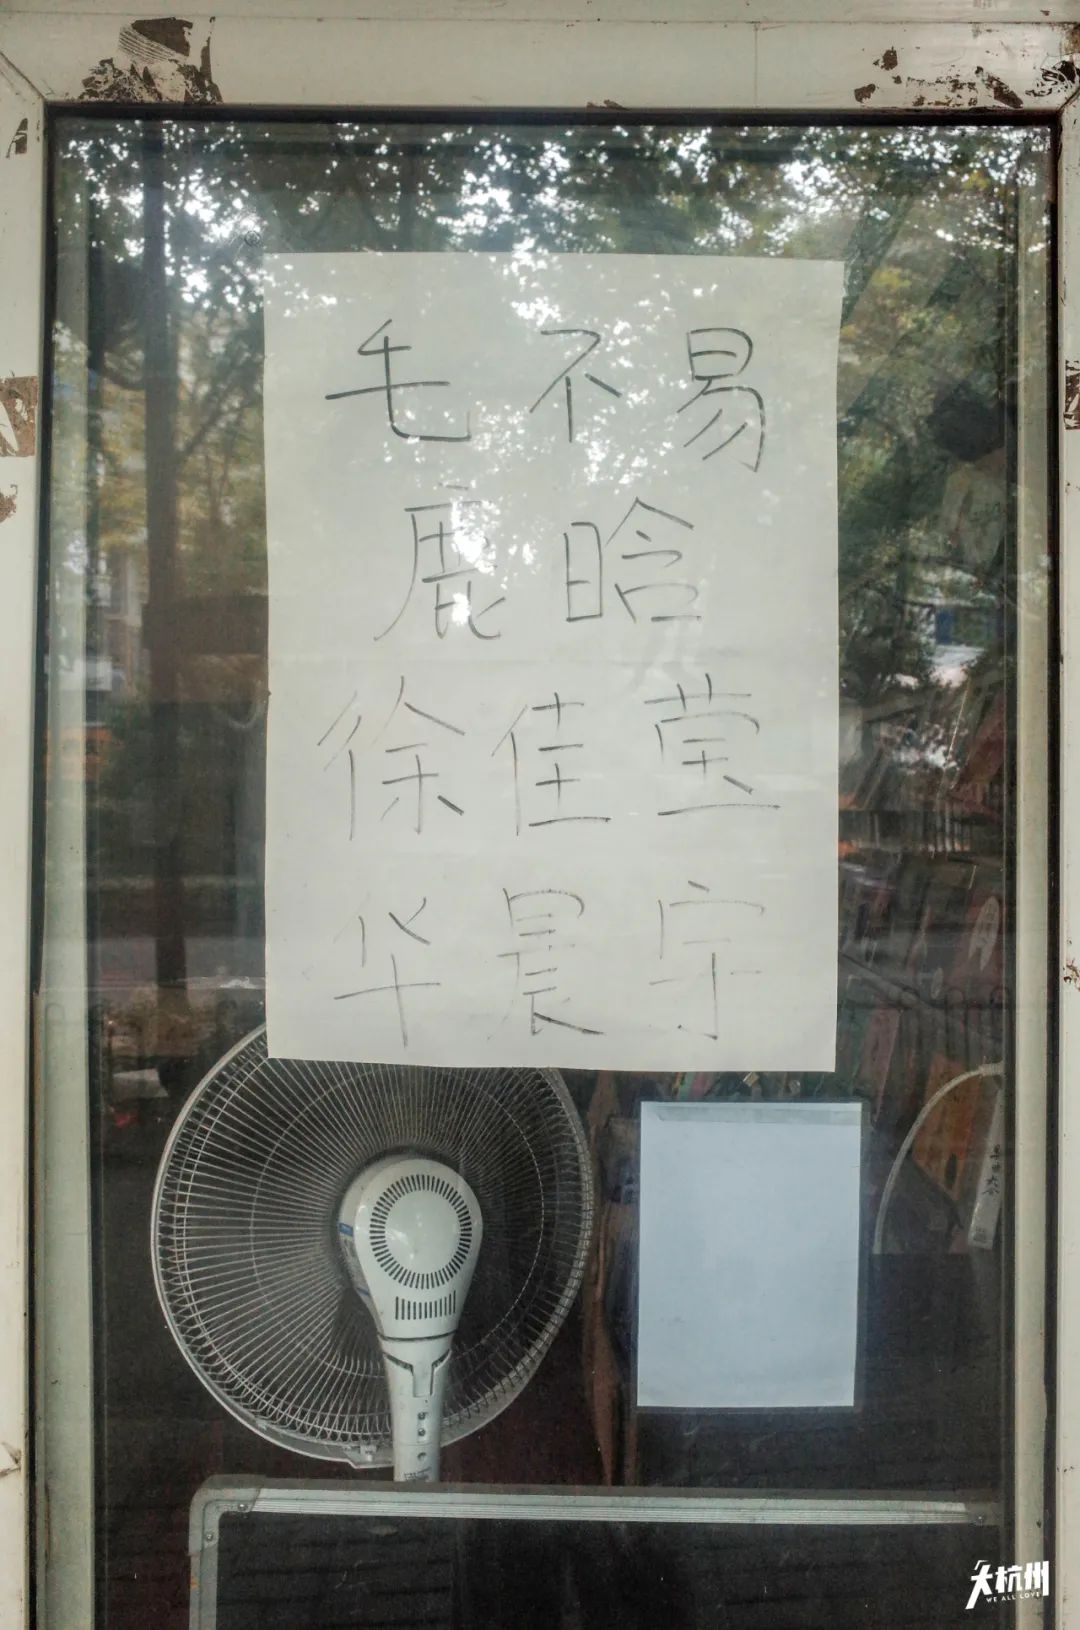 毛不易
鹿晗
徐佳莹
华晨宇
大杭州
WE ALL LOVE